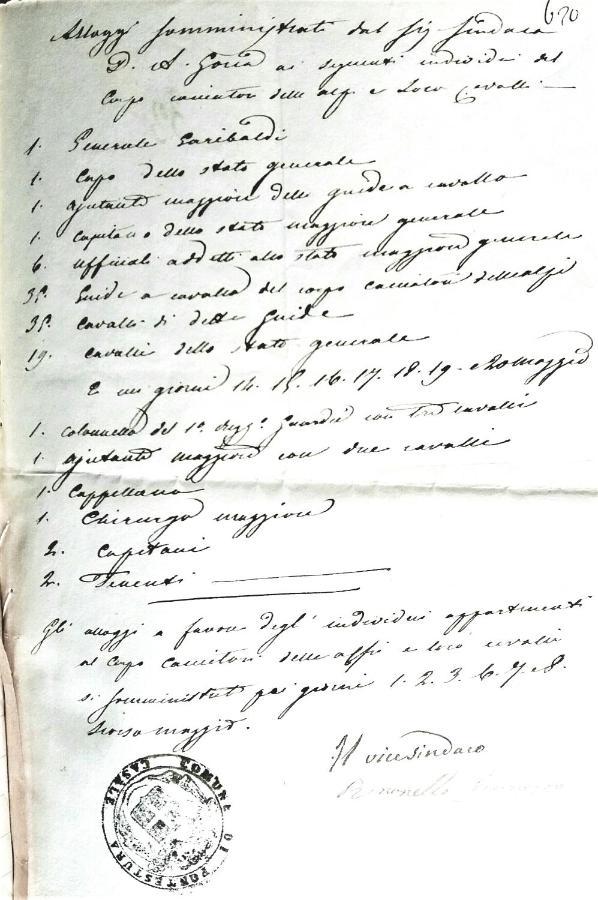 620
Alloggi somministrati dal sig. Sindaco
D. A. Goria ai seguenti individui del
Corpo cacciatori delle alpi e loro cavalli
1. Generale Garibaldi
1. Capo dello stato generale
1. ajutante maggiore delle guide a cavallo
1. capitano dello stato maggiore generale
6. ufficiali addetti allo stato maggiore generale
35. Guide a cavallo del corpo cacciatori delle alpi
35. cavalli di dette Guide
19. cavalli dello stato generale
E nei giorni 14. 15. 16. 17. 18. 19. e 20 maggio
1. colonnello del 1º. con tre cavalli
1. ajutante maggiore con due cavalli
1. Cappellano
1. Chirurgo maggiore
2. Capitani
2. Tenenti
Gli alloggi a favore degl' individui appartenenti
al corpo cacciatori delle alpi e loro cavalli
si somministrati pei giorni 1. 2. 3. 6. 7 e 8.
scorso maggio.
Il vicesindaco
COMUNE DI PONTESTURA
CASALE